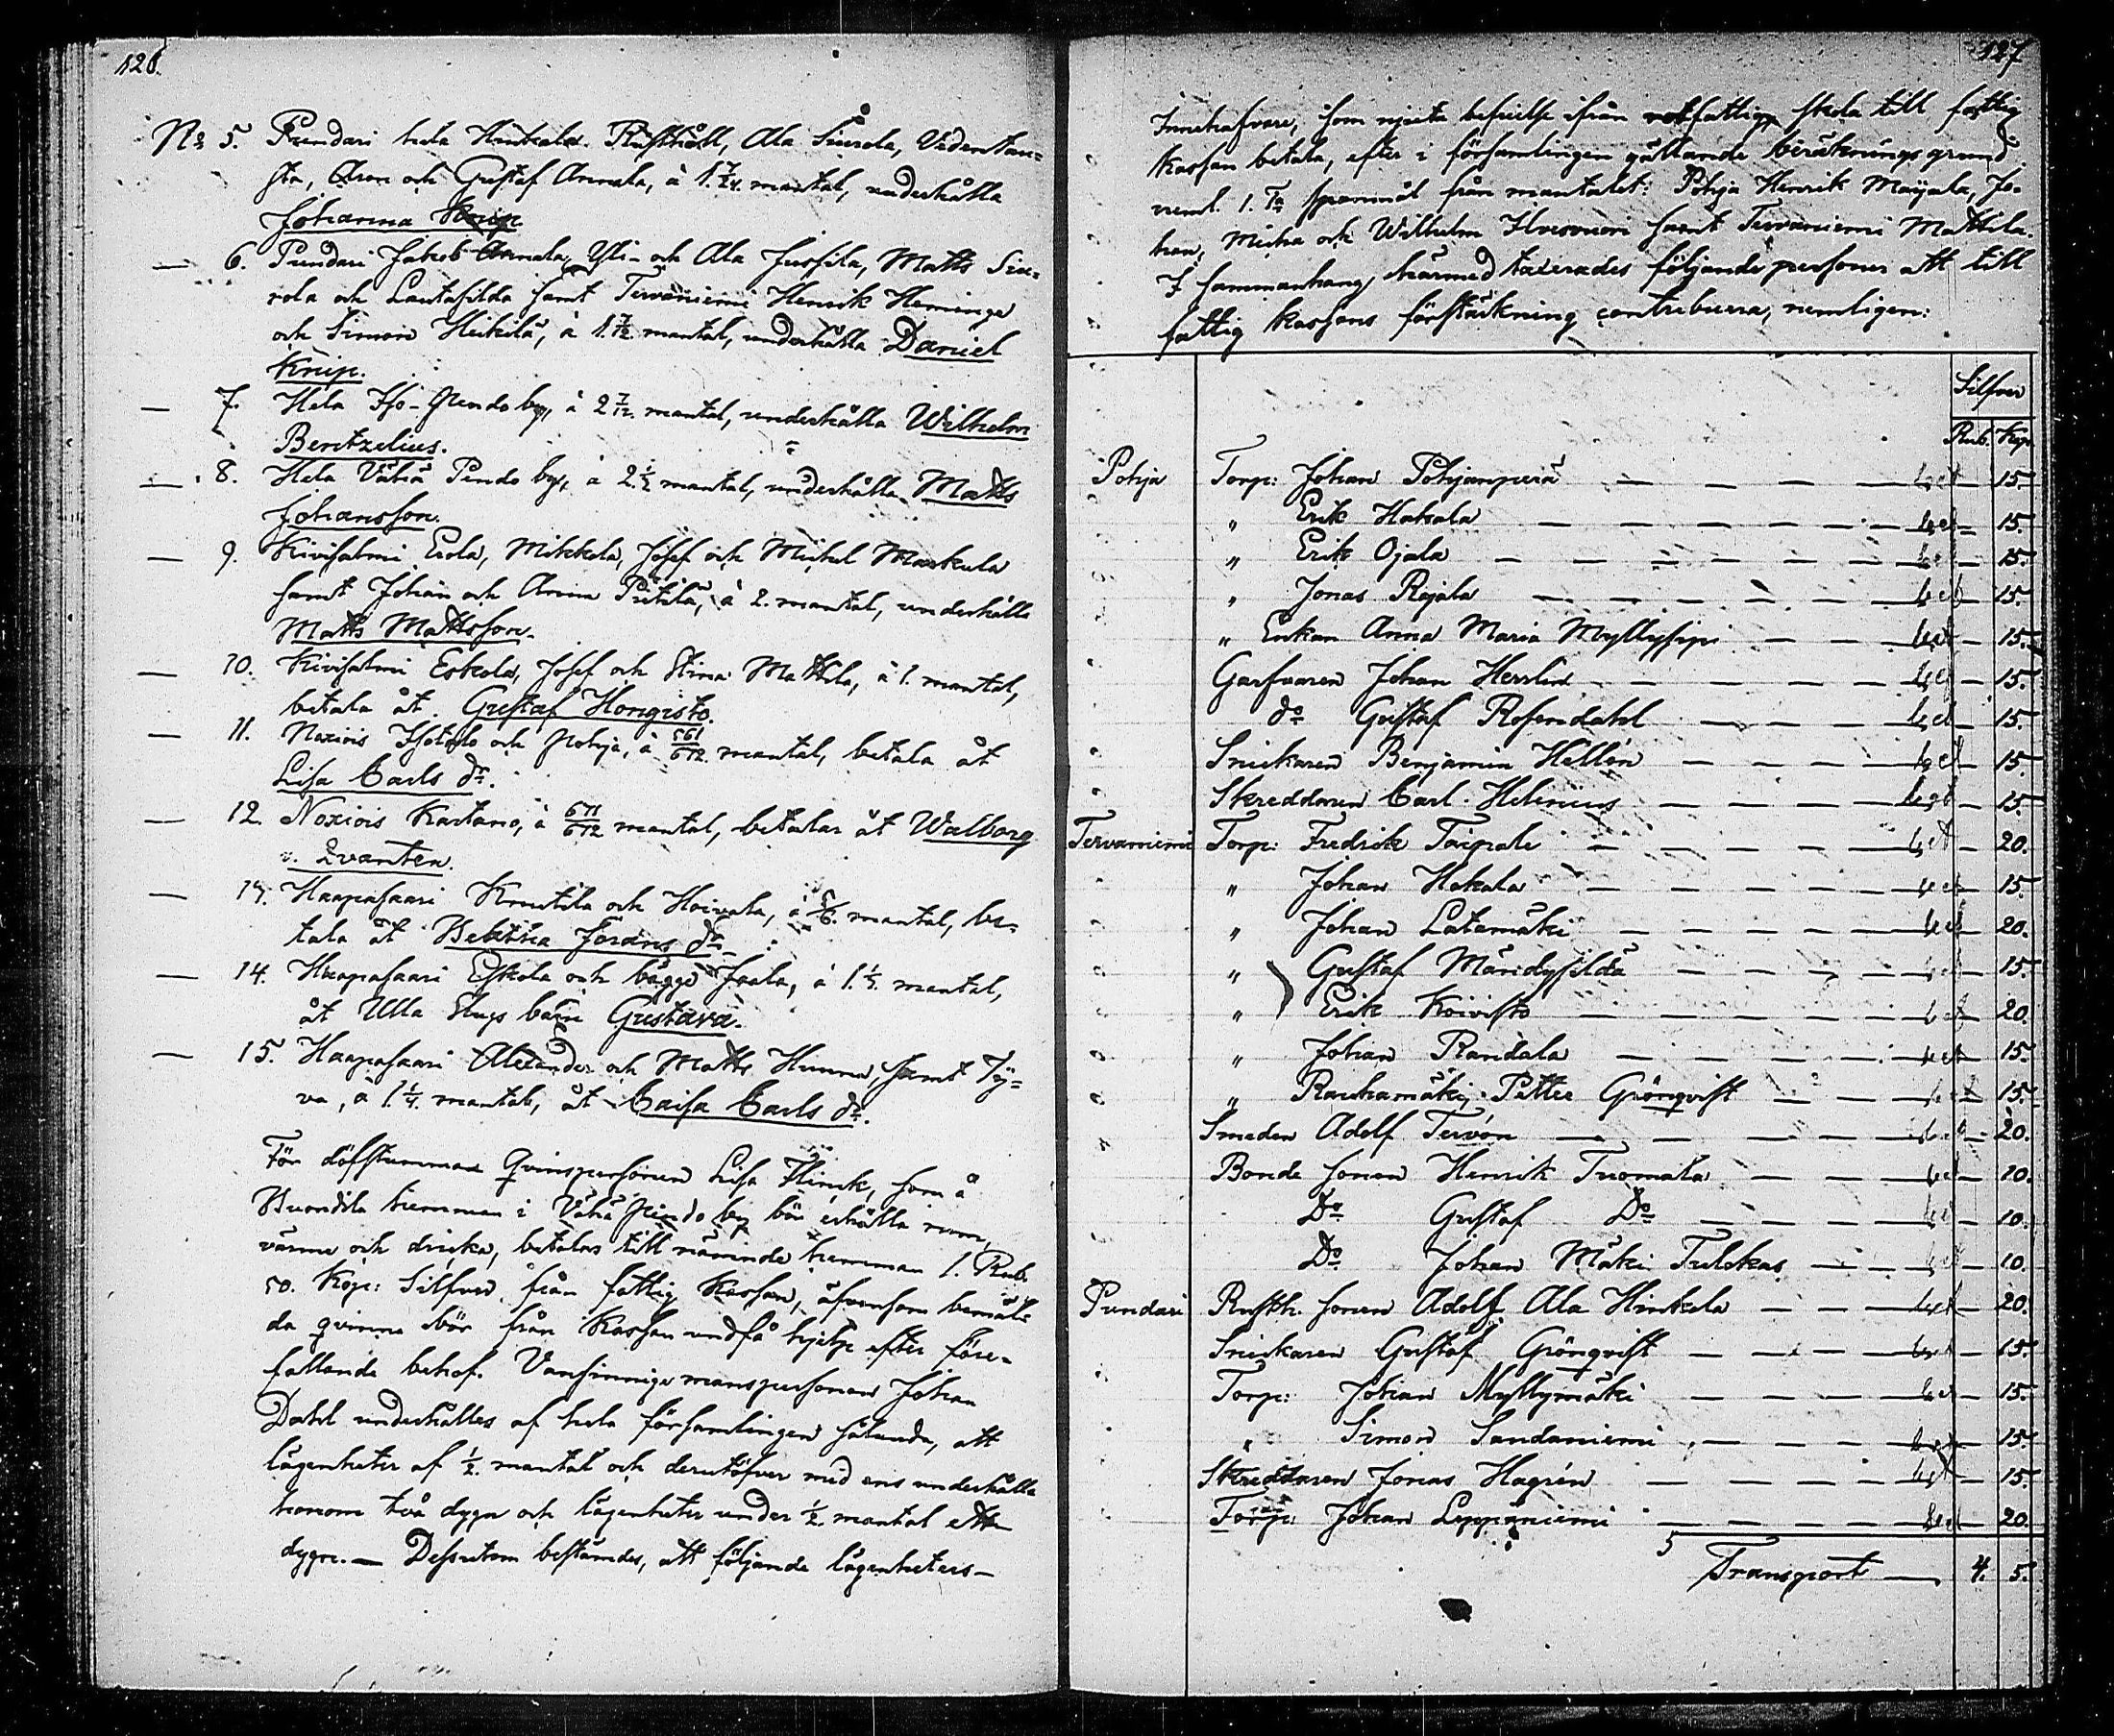 126.
No 5. Pundari hela Hinkala Rusthåll, Ala Siurola, Videntau=
sta, Aron och Gustaf Annala, à 1 7/24. mantal, underhålla
Johanna Knip
— 6. Pundari Jakob Annala, Yli- och Ala Jussila, Matts Siu=
rola och Lautasilda samt Tervaniemi Henrik Heminge
och Simon Heikilä, à 1 7/12 mantal, underhålla Daniel
Knip.
— 7. Hela Iso-Pendo by, à 2 7/12. mantal, underhålla Wilhelm
Bentzelius.
— 8. Hela Vähä Pendo by, à 2 1/2 mantal, underhålla Matts
Johansson.
— 9. Kivisalmi Erola, Mikkola, Josef och Michel Markula
samt Johan och Anna Pitkilä, à 2. mantal, underhålla
Matts Mattsson.
— 10. Kivisalmi Eskola, Josef och Stina Mattila, à 1. mantal,
betala åt Gustaf Hongisto.
— 11. Noxiois Isotalo och Pohja, à 561/672 mantal, betala åt
Lisa Carls dr.
— 12. Noxiois Kartano, à 671/672 mantal, betalar åt Walborg
v. Qvanten.
— 13. Haapasaari Knutila och Hoivala, à 5/6. mantal, be-
tala åt Jörans dr
— 14. Haapasaari Eskola och bägge Jaala, à 1 1/4. mantal,
åt Ulla Slugs barn Gustava.
— 15. Haapasaari Alexander och Matts Hunna, samt Ty=
va, à 1 1/4. mantal, åt Caisa Carls dr.
För döfstumman Qvinspersonen Lisa Flinck, som å
Vuondila hemman i Vähä Pendo by bör erhålla rum,
värme och dricka, betalas till nämnde hemman 1. Rub.
50. Kop: Silfver från fattig Kassan, äfvensom bemäl-
da qvinna bör från Kassan undfå hjelp efter före-
fallande behof. Vansinnige manspersonen Johan
Dahl underhålles af hela församlingen sålunda, att
lägenheter af 1/2. mantal och derutöfver med ens underhålla
honom två dygn och lägenheter under 1/2. mantal ett
dygn. — Dessutom bestämdes, att följande lägenheters-
127
Innehafvare, som njuta befrielse ifrån rotfattiga skola till fattig
Kassan betala, efter i församlingen gällande beräkningsgrund
neml. 1. Ta spanmål från mantalet: Pohja Henrik Maijala, Jo-
han, Micka och Wilhelm Ilvesvuori samt Tervaniemi Mattila.
I sammanhang härmed taxerades följande personer att till
fattig Kassans förstärkning contribuera, nemligen:
Silfver
Rub. Kop.
Pohja Torp: Johan Pohjanperä — — — 15.
" Erik Hakala — — — 15.
" Erik Ojala — — — 15.
" Jonas Rajala — — — 15.
" Enkan Anna Maria Myllysipi — — — 15.
Garfvaren Johan Herrlin — — — 15.
do Gustaf Rosendahl — — — 15.
Snickaren Benjamin Hellén — — — 15.
Skreddaren Carl Helenius — — — 15.
Tervaniemi Torp: Fredrik Taipale — — — 20.
" Johan Hakala — — — 15.
" Johan Latamäki — — — 20.
" Gustaf Mändysildä — — — 15.
" Erik Koivisto — — — 20.
" Johan Randala — — — 15.
" Rauhamäki, Petter Grönqvist — — — 15.
Smeden Adolf Tervón — — — 20.
Bonde sonen Henrik Tuomala — — — 10.
Do Gustaf Do — — — 10.
Do Johan Mäki Tulokas — — — 10.
Pundari Rusth. sonen Adolf Ala Hinkala — — — 20.
Snickaren Gustaf Grönqvist — — — 15.
Torp: Johan Myllymäki — — — 15.
" Simon Sandaniemi — — — 15.
Skreddaren Jonas Hagrén — — — 15.
Torp: Johan Leppäniemi — — — 20.
Transport — 4. 5.